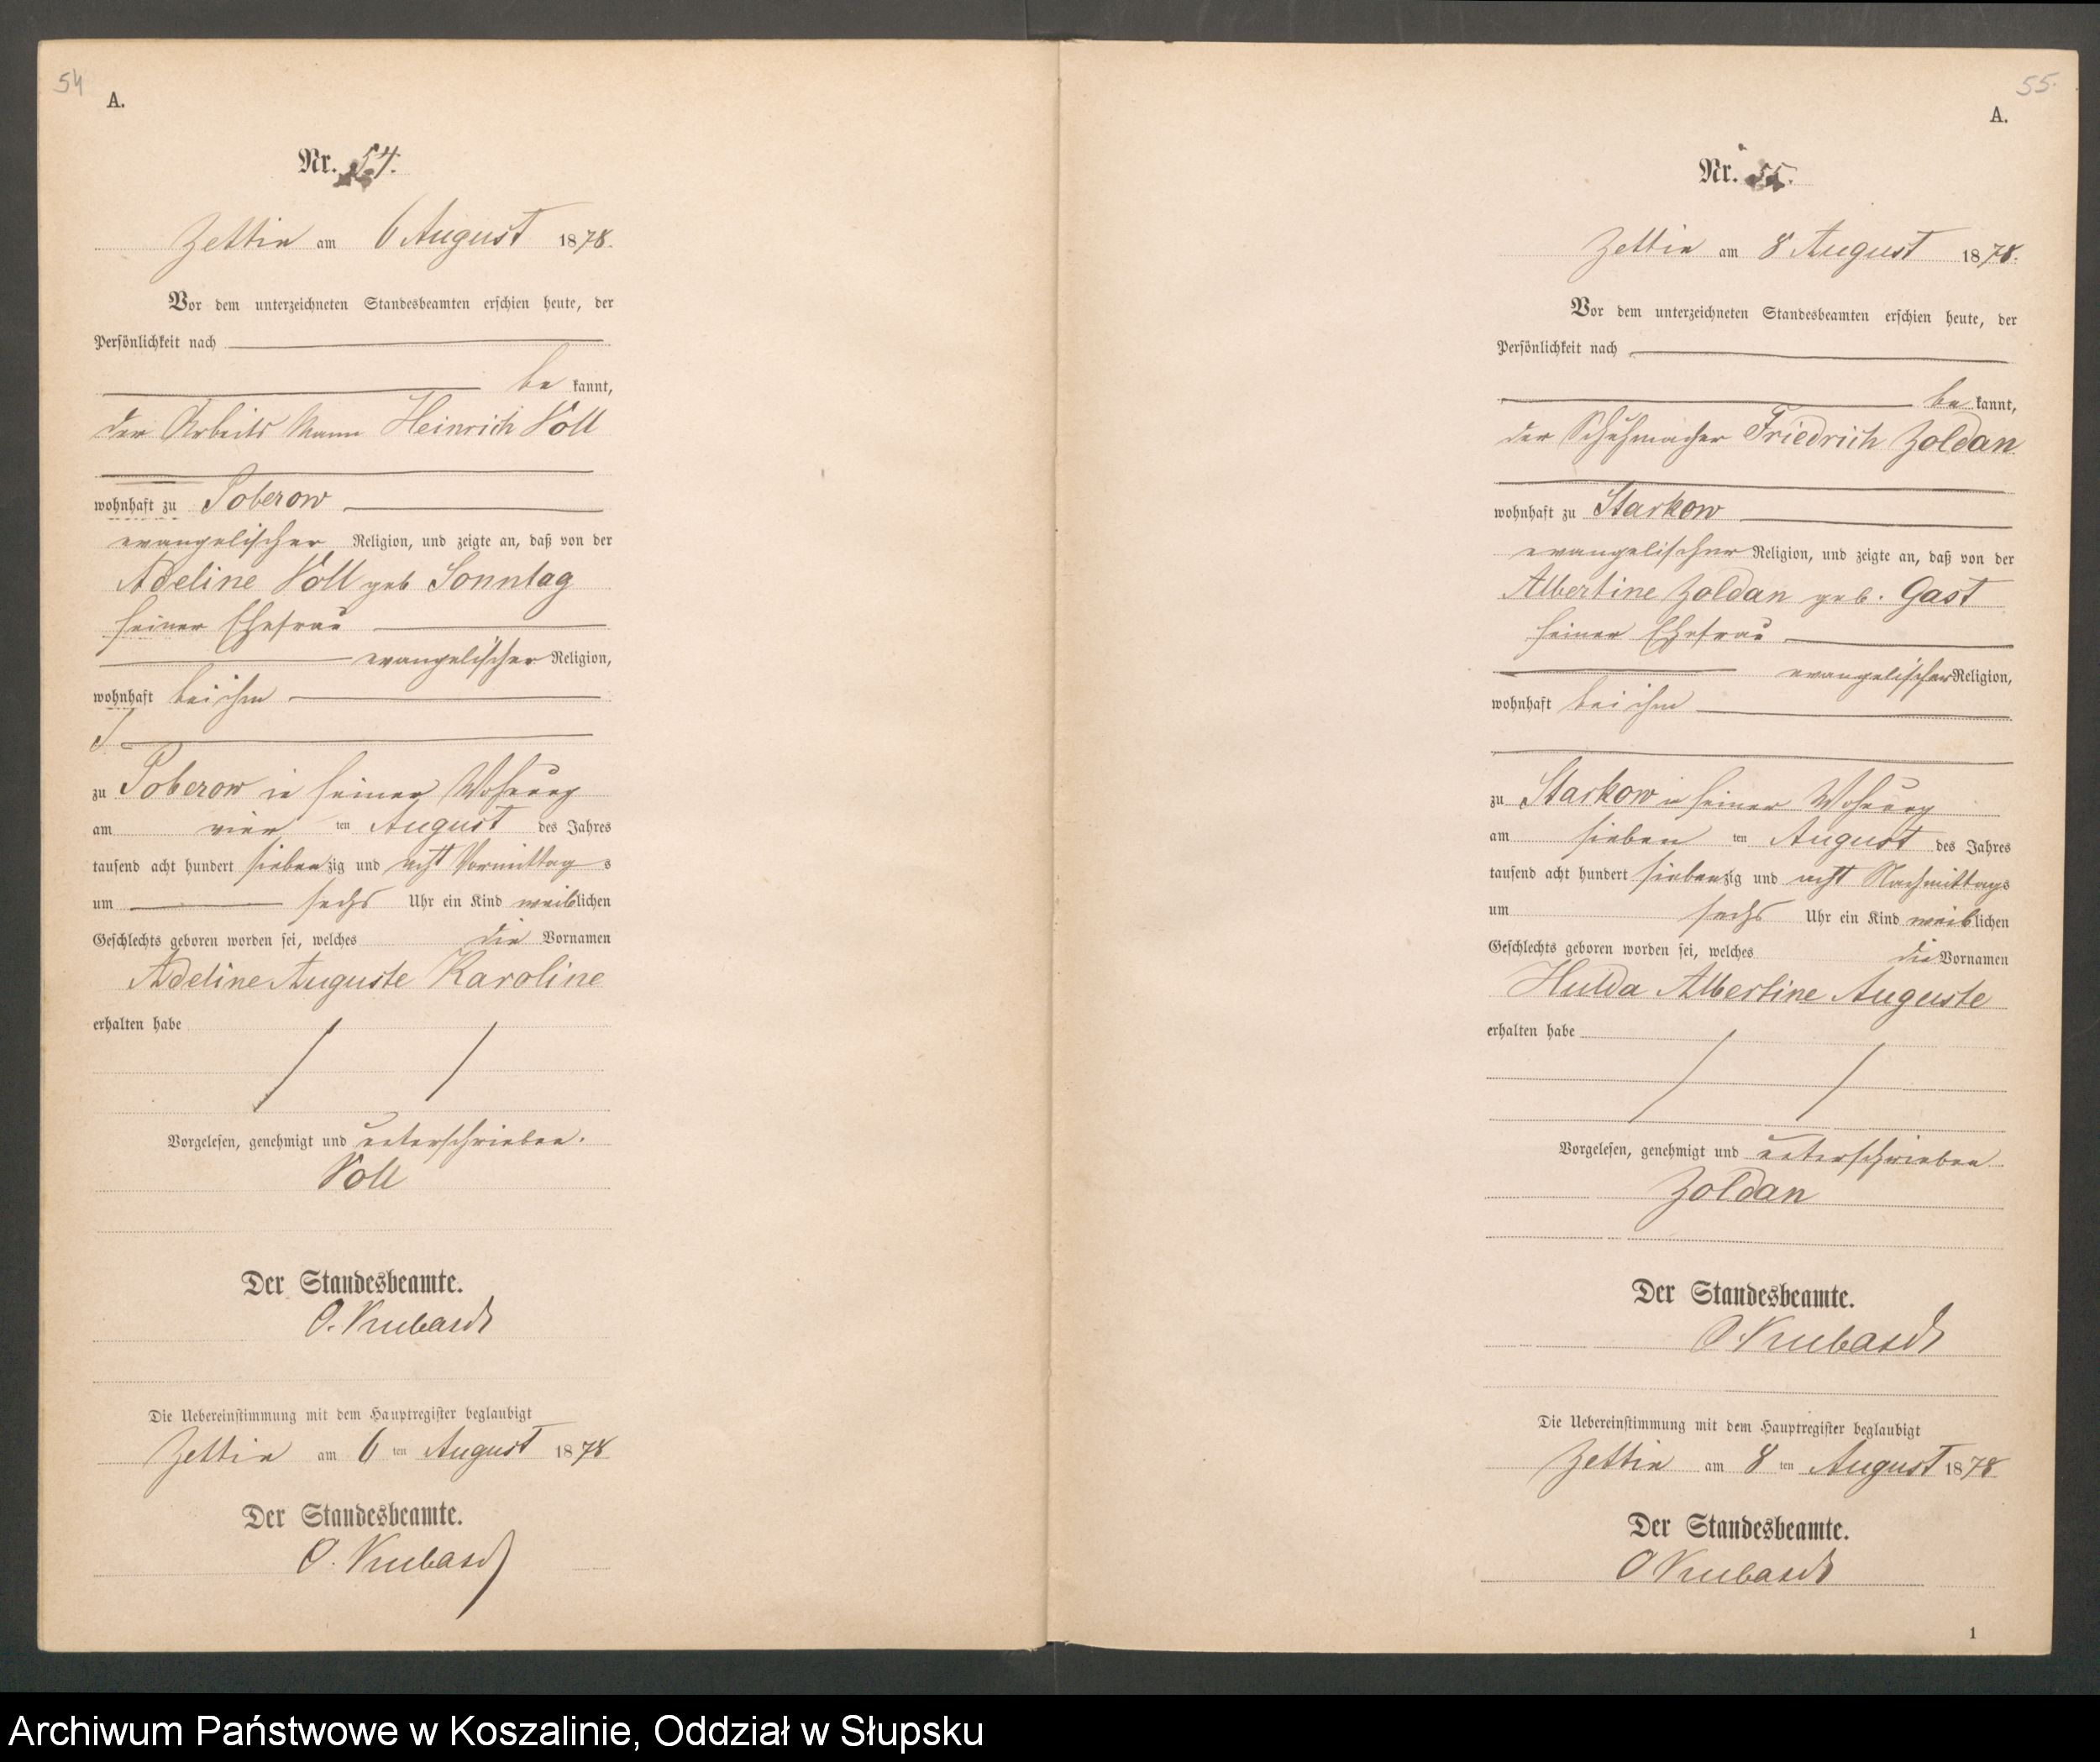 54
A.
Nr. 54.
Zettin am 6 August 1878.
Vor dem unterzeichneten Standesbeamten erschien heute, der
Persönlichkeit nach
be kannt,
der Arbeits Mann Heinrich Voll
wohnhaft zu Poberow
evangelischer Religion, und zeigte an, daß von der
Adeline Voll geb Sonntag
seiner Ehefrau
evangelischer Religion,
wohnhaft bei ihm
zu Poberow in seiner Wohnung
am vier ten August des Jahres
tausend acht hundert siebenzig und acht Vormittag s
um sechs Uhr ein Kind weiblichen
Geschlechts geboren worden sei, welches die Vornamen
Adeline Auguste Karoline
erhalten habe
Vorgelesen, genehmigt und unterschrieben.
Voll
Der Standesbeamte.
O.
Die Uebereinstimmung mit dem Hauptregister beglaubigt
Zettin am 6 ten August 1878
Der Standesbeamte.
O.
55.
A.
Nr. 55.
Zettin am 8 August 1878.
Vor dem unterzeichneten Standesbeamten erschien heute, der
Persönlichkeit nach
be kannt,
der Schuhmacher Friedrich Zoldan
wohnhaft zu Starkow
evangelischer Religion, und zeigte an, daß von der
Albertine Zoldan geb. Gast
seiner Ehefrau
evangelischer Religion,
wohnhaft bei ihm
zu Starkow in seiner Wohnung
am sieben ten August des Jahres
tausend acht hundert siebenzig und acht Nachmittags
um sechs Uhr ein Kind weiblichen
Geschlechts geboren worden sei, welches die Vornamen
Hulda Albertine Auguste
erhalten habe
Vorgelesen, genehmigt und unterschrieben
Zoldan
Der Standesbeamte.
O
Die Uebereinstimmung mit dem Hauptregister beglaubigt
Zettin am 8 ten August 1878
Der Standesbeamte.
O
1
Archiwum Państwowe w Koszalinie, Oddział w Słupsku